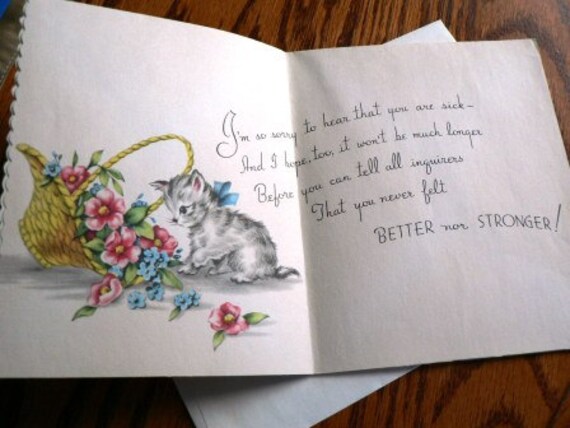 I'm so sorry to hear that you are sick-
And I hope, too, it won't be much longer
Before you can tell all inquirers
That you never felt
BETTER nor STRONGER!